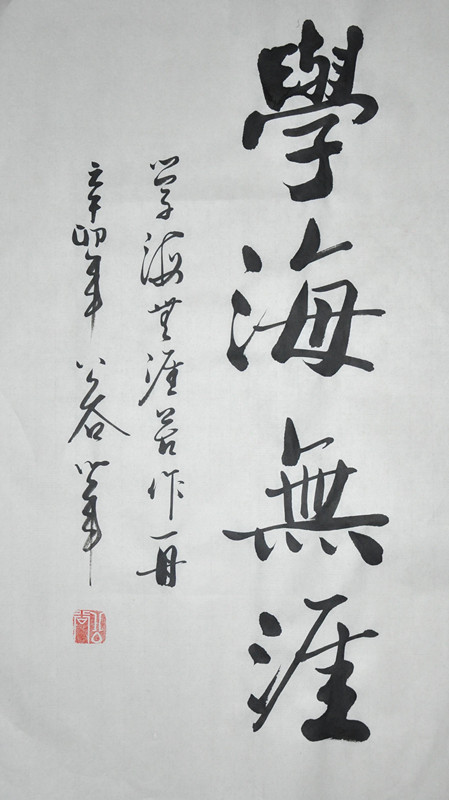 學海無涯
学海無涯苦作舟
辛卯年